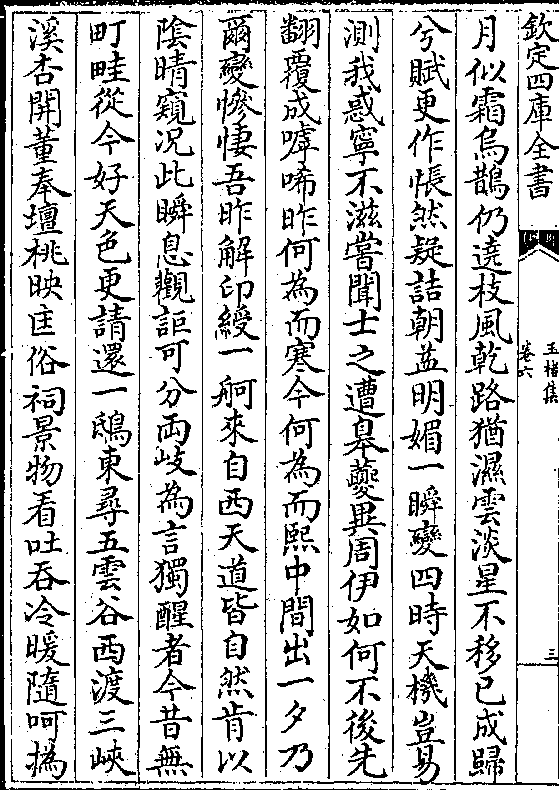 欽定四庫全書
玉楮集
卷六
三
月似霜烏鵲仍遶枝風乾路猶濕雲淡星不移已成歸
兮賦更作悵然疑詰朝益明媚一瞬變四時天機豈易
測我惑寧不滋嘗聞士之遭臯夔異周伊如何不後先
翻覆成嘑唏昨何為而寒今何為而熙中間出一夕乃
爾變慘悽吾昨解印綬一舸來自西天道皆自然肯以
陰晴窺况此瞬息觀詎可分兩岐為言獨醒者今昔無
町畦從今好天色更請還一鴟東尋五雲谷西渡三峽
溪杏開董奉壇桃映匡俗祠景物看吐吞冷暖隨呵撝